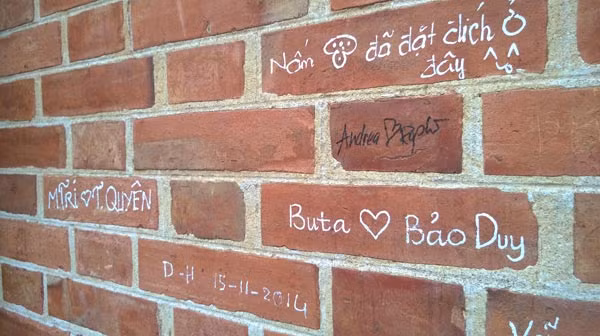 Nấm đã đặt đích ở
đây
Andrea ♡
M.TRí ♡ T. QUYÊN
Buta ♡ Bảo Duy
D-H 15-11-2014